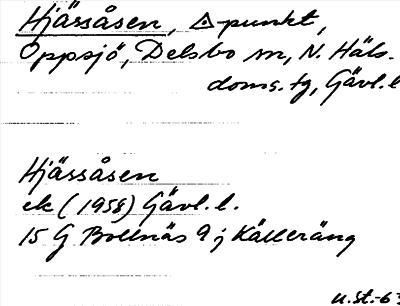 Hjässåsen, △-punkt,
Oppsjö, Delsbo sn, N. Häls.
doms. tg, Gävl. l
Hjässåsen
ek (1958) Gävl. l.
15 G Bollnäs 9 j Källeräng
u.st.-63